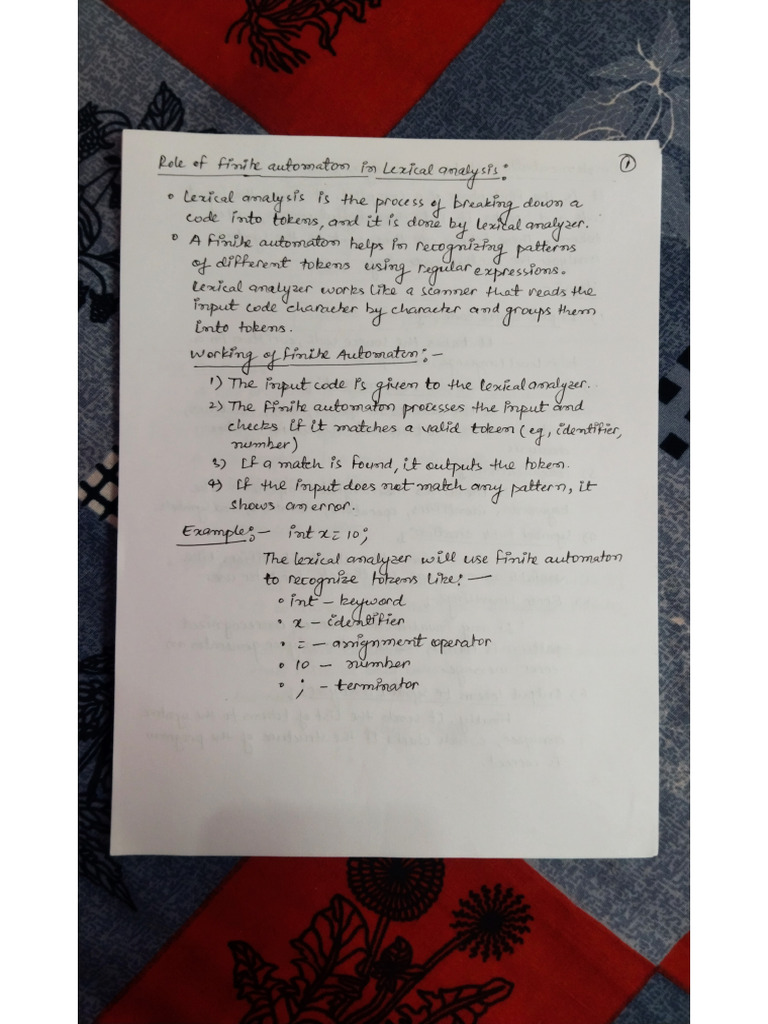 Role of finite automaton in Lexical analysis:
1
• Lexical analysis is the process of breaking down a
code into tokens, and it is done by lexical analyzer.
• A finite automaton helps in recognizing patterns
of different tokens using regular expressions.
Lexical analyzer works like a scanner that reads the
input code character by character and groups them
into tokens.
Working of Finite Automaton:-
1) The input code is given to the lexical analyzer.
2) The finite automaton processes the input and
checks if it matches a valid token (eg, identifier,
number)
3) If a match is found, it outputs the token.
4) If the input does not match any pattern, it
shows an error.
Example:- int x = 10;
The lexical analyzer will use finite automaton
to recognize tokens like:-
• int - keyword
• x - identifier
• = - assignment operator
• 10 - number
• ; - terminator